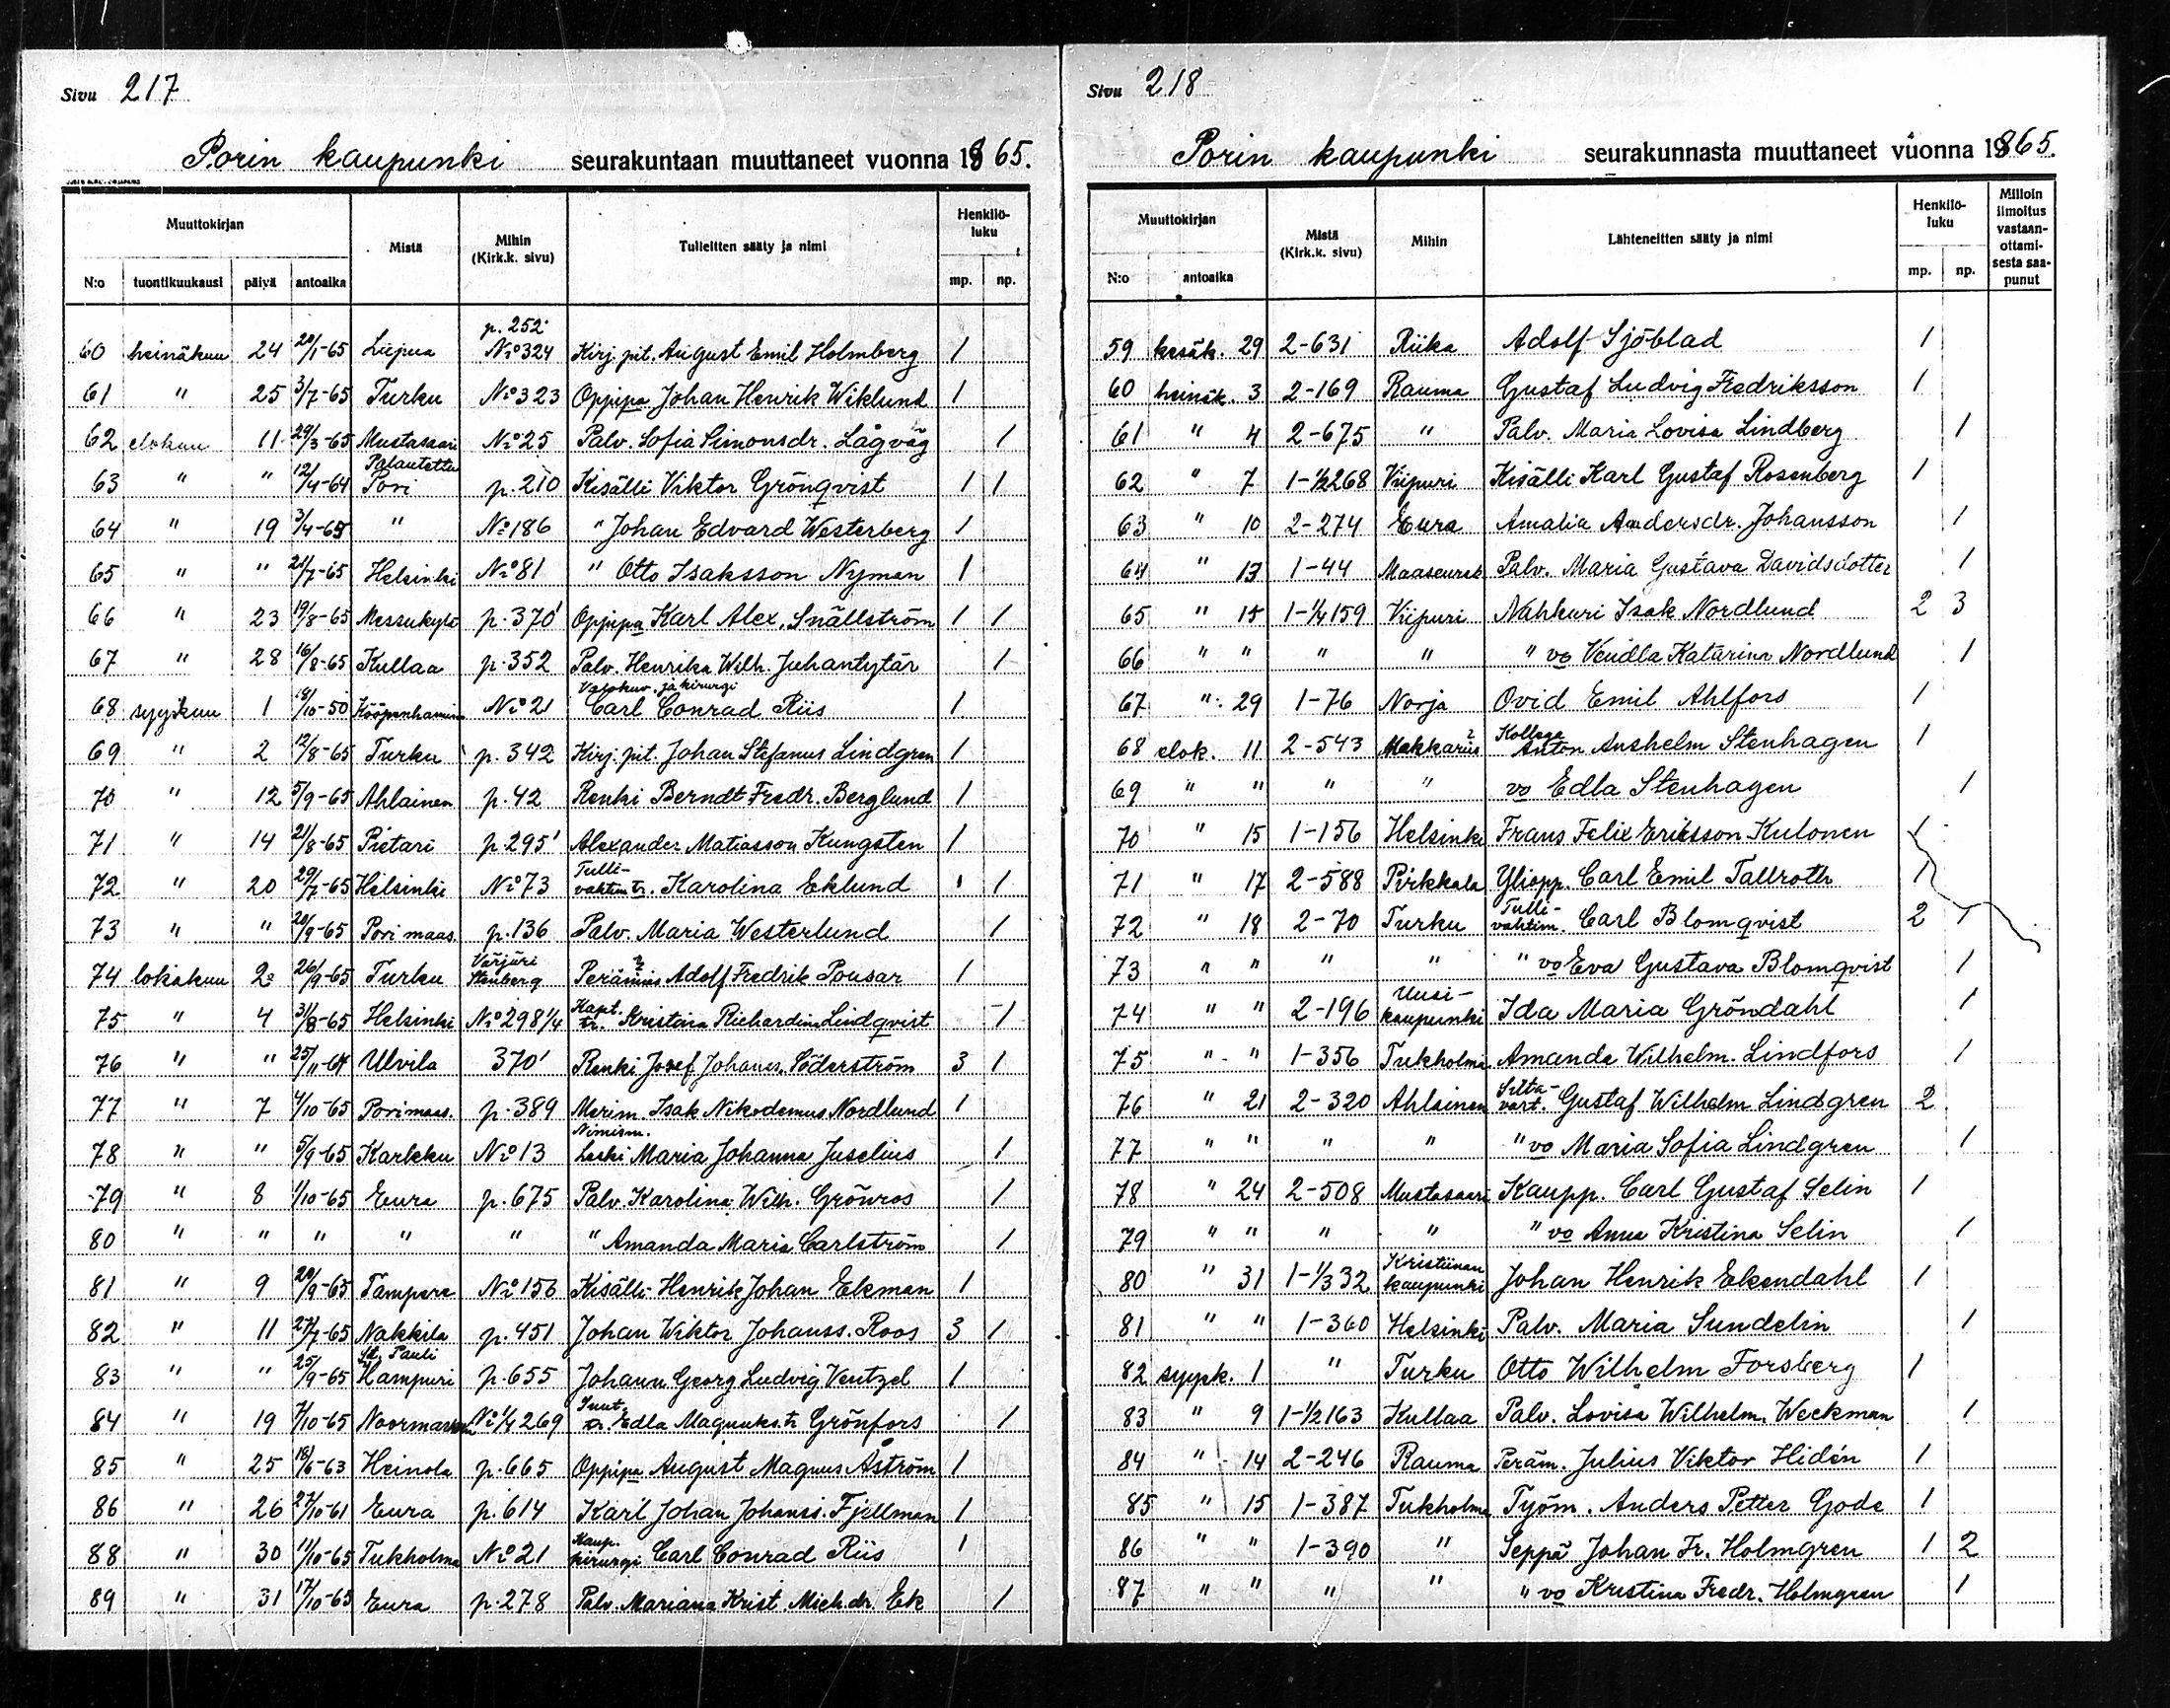 Sivu 217
Porin kaupunki seurakuntaan muuttaneet vuonna 1865.
Muuttokirjan Mistä Mihin (Kirk.k. sivu) Tulleitten sääty ja nimi Henkilö-luku
N:o tuontikuukausi päivä antoaika mp. np.
p. 252
60 heinäkuu 24 20/1-65 Liepua No 324 Kirj. pit. August Emil Holmberg 1
61 " 25 3/7-65 Turku No 323 Oppipa Johan Henrik Wiklund 1
62 elokuu 11 29/3-65 Mustasaari No 25 Palv. Sofia Simonsdr. Lågväg 1
Palautettu
63 " " 12/4-64 Pori p. 210 Kisälli Viktor Grönqvist 1 1
64 " 19 3/4-65 " No 186 " Johan Edvard Westerberg 1
65 " " 21/7-65 Helsinki No 81 " Otto Isaksson Nyman 1
66 " 23 19/8-65 Messukylä p. 370' Oppipa Karl Alex. Snällström 1 1
67 " 28 16/8-65 Kullaa p. 352 Palv. Henrika Wilh. Juhantytär 1
Valokuv. ja kirurgi
68 syyskuu 1 18/10-50 Kööpenhamina No 21 Carl Conrad Riis 1
69 " 2 12/8-65 Turku p. 342 Kirj. pit. Johan Stefanus Lindgren 1
70 " 12 5/9-65 Ahlainen p. 42 Renki Berndt Fredr. Berglund 1
71 " 14 21/8-65 Pietari p. 295' Alexander Matiasson Kungsten 1
Tulli-
72 " 20 29/7-65 Helsinki No 73 vahtim tr. Karolina Eklund 1 1
73 " " 20/9-65 Pori maas. p. 136 Palv. Maria Westerlund 1
Värjäri
74 lokakuu 2 26/9-65 Turku Stenberg Perämies Adolf Fredrik Pousar 1
Kapt.
75 " 4 31/8-65 Helsinki No 298 1/4 tr. Kristina Richardina Lindqvist 1
76 " " 25/11-64 Ulvila 370' Renki Josef Johans. Söderström 3 1
77 " 7 4/10-65 Pori maas. p. 389 Merim. Isak Nikodemus Nordlund 1
Nimism.
78 " " 5/9-65 Karkku No 13 Leski Maria Johanna Juselius 1
79 " 8 1/10-65 Eura p. 675 Palv. Karolina Wilh. Grönros 1
80 " " " " " " Amanda Maria Carlström 1
81 " 9 20/9-65 Tampere No 156 Kisälli Henrik Johan Ekman 1
82 " 11 27/7-65 Nakkila p. 451 Johan Wiktor Johanss. Roos 3 1
St. Pauli
83 " " 25/9-65 Hampuri p. 655 Johann Georg Ludvig Ventzel 1
84 " 19 7/10-65 Noormarkku No 1/4 269 tr. Edla Magnuks. tr Grönfors 1
85 " 25 18/6-63 Heinola p. 665 Oppipa August Magnus Åström 1
86 " 26 27/10-61 Eura p. 614 Karl Johan Johanss. Fjellman 1
Kaup.
88 " 30 11/10-65 Tukholma No 21 kirurgi Carl Conrad Riis 1
89 " 31 17/10-65 Eura p. 278 Palv. Mariana Krist. Mich.dr. Ek 1
Sivu 218
Porin kaupunki seurakunnasta muuttaneet vuonna 1865.
Muuttokirjan Mistä (Kirk.k. sivu) Mihin Lähteneitten sääty ja nimi Henkilö-luku Milloin ilmoitus vastaan-ottami-sesta saa-punut
N:o antoaika mp. np.
59 kesäk. 29 2-631 Riika Adolf Sjöblad 1
60 heinäk. 3 2-169 Rauma Gustaf Ludvig Fredriksson 1
61 " 4 2-675 " Palv. Maria Lovisa Lindberg 1
62 " 7 1-1/2268 Viipuri Kisälli Karl Gustaf Rosenberg 1
63 " 10 2-274 Eura Amalia Andersdr. Johansson 1
64 " 13 1-44 Maaseurak Palv. Maria Gustava Davidsdotter 1
65 " 15 1-1/4159 Viipuri Nahkuri Isak Nordlund 2 3
66 " " " " " vo Vendla Katarina Nordlund 1
67 " 29 1-76 Norja Ovid Emil Ahlfors 1
Kollega
68 elok. 11 2-543 Makkarus ? Anton Anshelm Stenhagen 1
69 " " " " vo Edla Stenhagen 1
70 " 15 1-156 Helsinki Frans Felix Eriksson Kulonen 1
71 " 17 2-588 Pirkkala Yliopp. Carl Emil Tallroth 1
Tulli-
72 " 18 2-70 Turku vahtim. Carl Blomqvist 2 1
73 " " " " " vo Eva Gustava Blomqvist 1
Uusi-
74 " " 2-196 kaupunki Ida Maria Gröndahl 1
75 " " 1-356 Tukholma Amanda Wilhelm. Lindfors 1
Silta-
76 " 21 2-320 Ahlainen vart. Gustaf Wilhelm Lindgren 2
77 " " " " " vo Maria Sofia Lindgren 1
78 " 24 2-508 Mustasaari Kaupp. Carl Gustaf Selin 1
79 " " " " " vo Anna Kristina Selin 1
Kristiinan
80 " 31 1-1/332 kaupunki Johan Henrik Ekendahl 1
81 " " 1-360 Helsinki Palv. Maria Sundelin 1
82 syysk. 1 " Turku Otto Wilhelm Forsberg 1
83 " 9 1-1/2163 Kullaa Palv. Lovisa Wilhelm. Weckman 1
84 " 14 2-246 Rauma Peräm. Julius Viktor Hidén 1
85 " 15 1-387 Tukholma Työm. Anders Petter Gode 1
86 " " 1-390 " Seppä Johan Fr. Holmgren 1 2
87 " " " " " vo Kristina Fredr. Holmgren 1